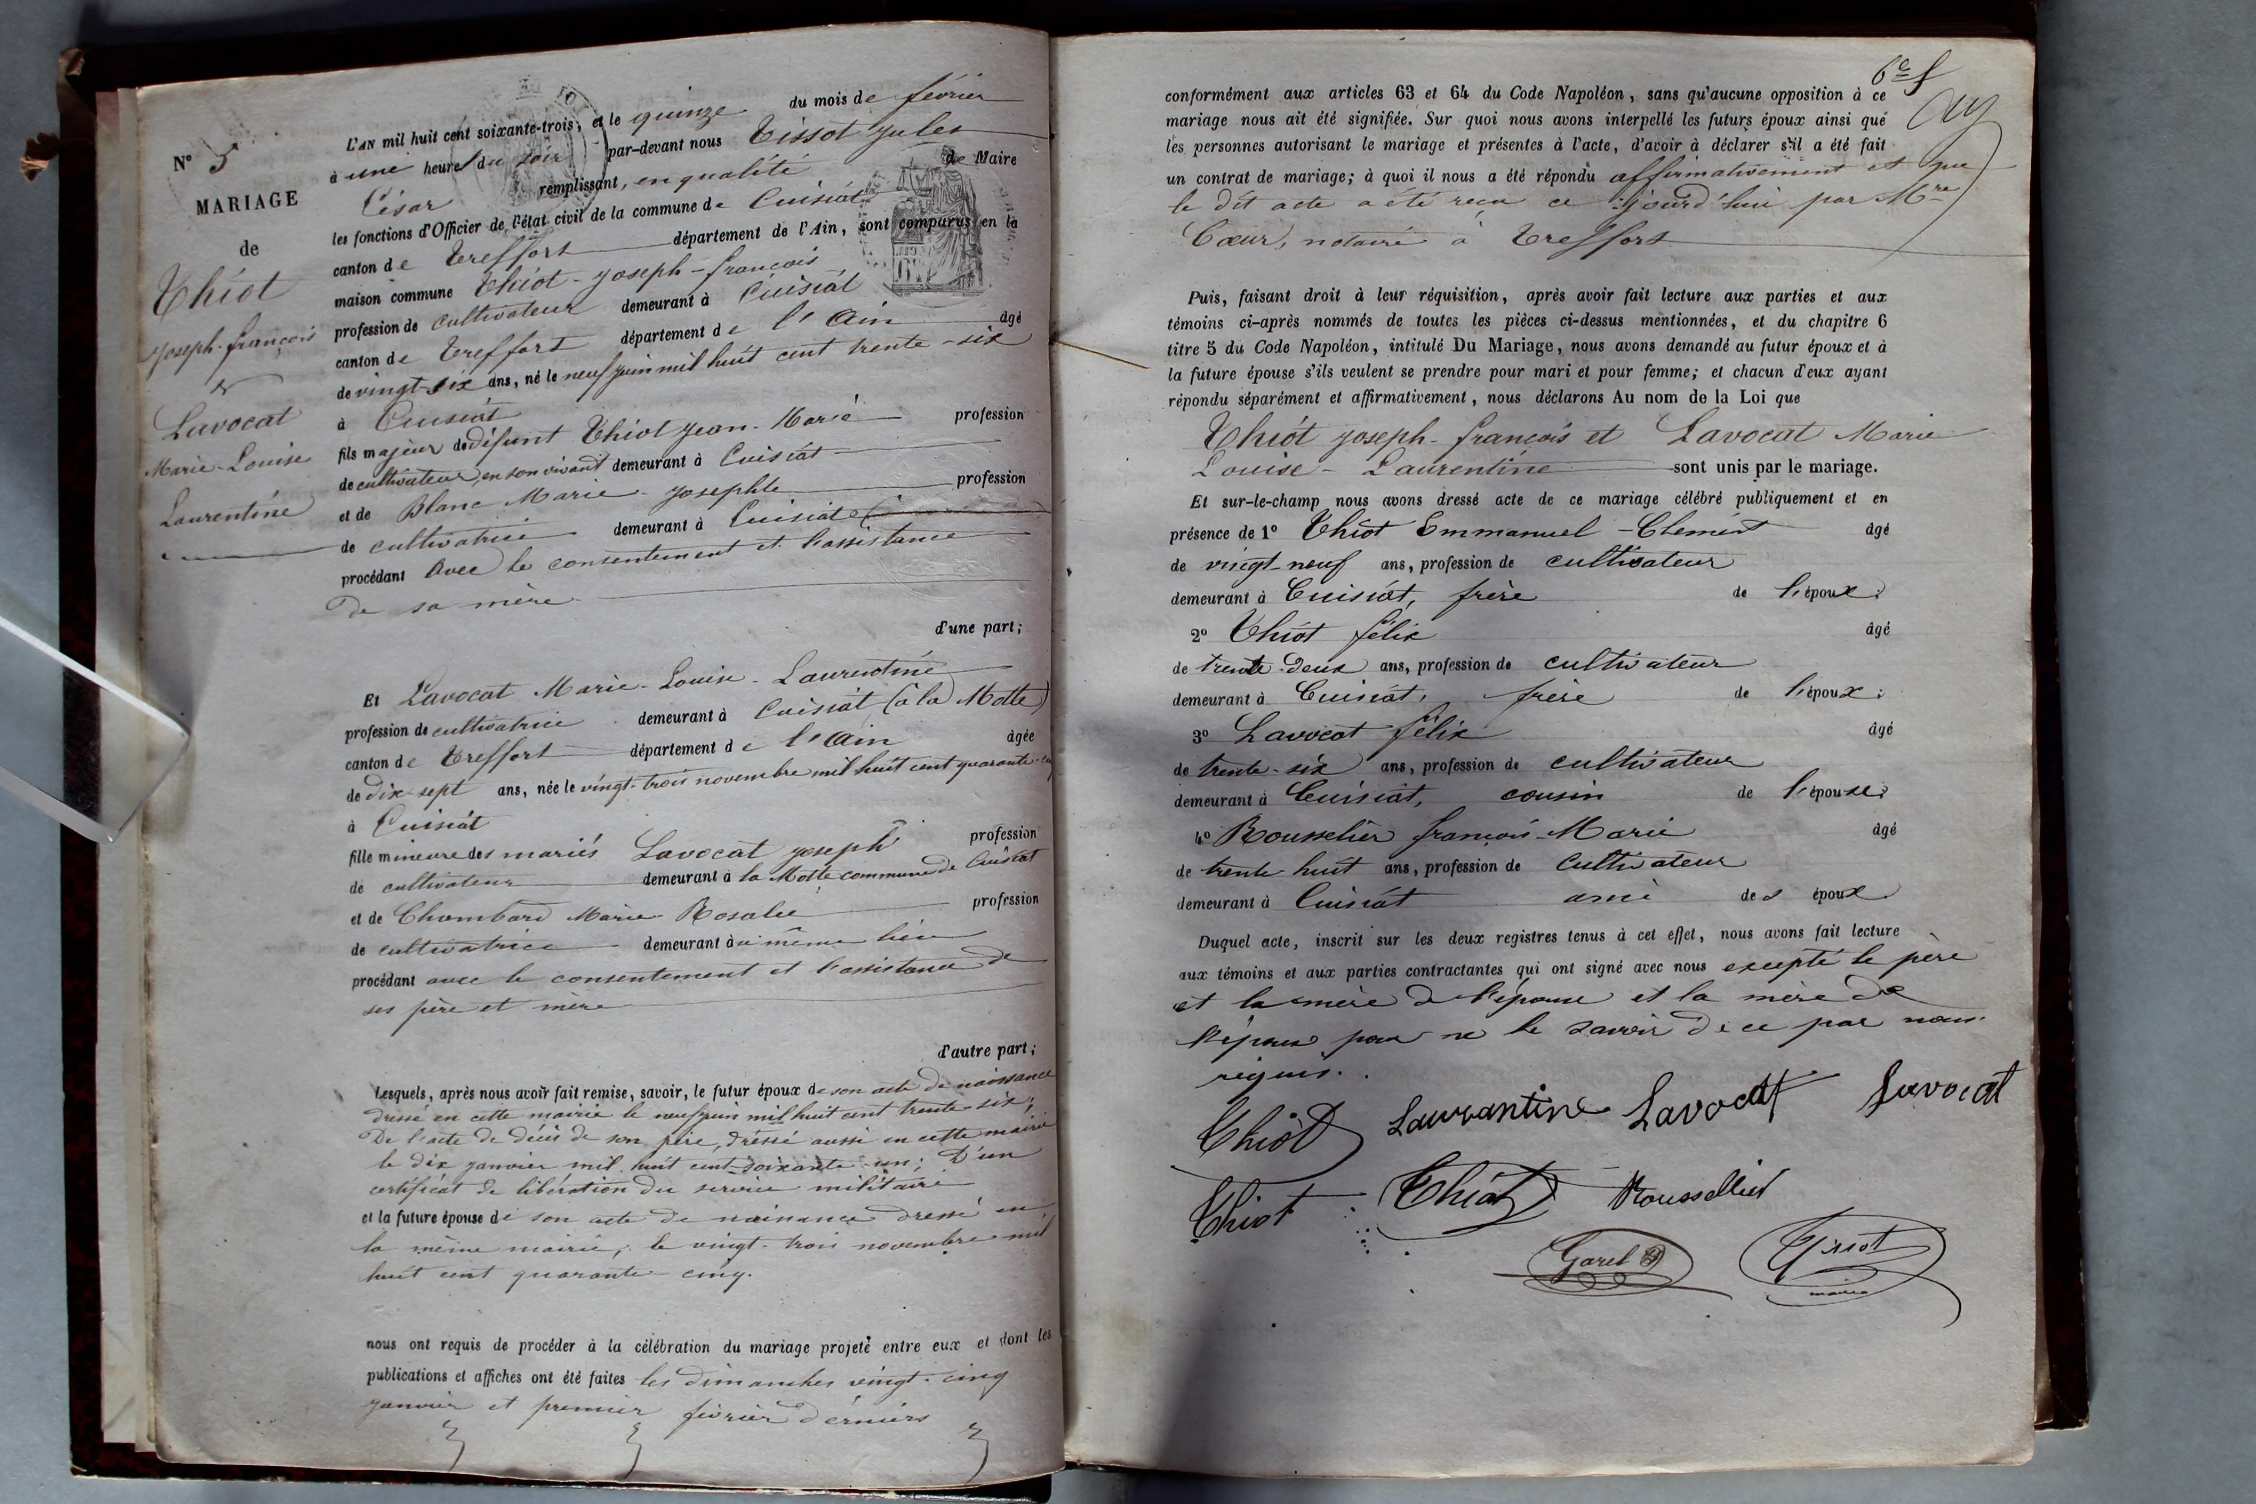 N° 5
MARIAGE
de
Thiot
Joseph-françois
&
Lavocat
Marie-Louise
Laurentine
L'AN mil huit cent soixante-trois, et le quinze du mois de février
à une heure du soir par-devant nous Tissot Jules
César remplissant, en qualité de Maire
les fonctions d'Officier de l'état civil de la commune de Cuisiat
canton de Treffort département de l'Ain, sont comparus en la
maison commune Thiot-Joseph-françois
profession de cultivateur demeurant à Cuisiat
canton de Treffort département de l'Ain âgé
de vingt-six ans, né le neuf juin mil huit cent trente-six
à Cuisiat
fils majeur de défunt Thiot Jean-Marie profession
de cultivateur, en son vivant demeurant à Cuisiat
et de Blanc Marie-Josephte profession
de cultivatrice demeurant à Cuisiat
procédant avec le consentement et l'assistance
de sa mère
d'une part;
Et Lavocat Marie-Louise-Laurentine
profession de cultivatrice demeurant à Cuisiat (à la Motte)
canton de Treffort département de l'Ain âgée
de dix-sept ans, née le vingt-trois novembre mil huit cent quarante-cinq
à Cuisiat
fille mineure des mariés Lavocat Joseph profession
de cultivateur demeurant à la Motte commune de Cuisiat
et de Chambard Marie-Rosalie profession
de cultivatrice demeurant au même lieu
procédant avec le consentement et l'assistance de
ses père et mère
d'autre part;
Lesquels, après nous avoir fait remise, savoir, le futur époux de son acte de naissance
dressé en cette mairie le neuf juin mil huit cent trente-six;
De l'acte de décès de son père, dressé aussi en cette mairie
le dix janvier mil huit cent soixante-un; D'un
certificat de libération du service militaire
et la future épouse de son acte de naissance dressé en
la même mairie, le vingt-trois novembre mil
huit cent quarante-cinq.
nous ont requis de procéder à la célébration du mariage projeté entre eux et dont les
publications et affiches ont été faites les dimanches vingt-cinq
janvier et premier février derniers
conformément aux articles 63 et 64 du Code Napoléon, sans qu'aucune opposition à ce
mariage nous ait été signifiée. Sur quoi nous avons interpellé les futurs époux ainsi que
les personnes autorisant le mariage et présentes à l'acte, d'avoir à déclarer s'il a été fait
un contrat de mariage; à quoi il nous a été répondu affirmativement et que
le dit acte a été reçu ce jourd'hui par Mre
Cœur, notaire à Treffort
Puis, faisant droit à leur réquisition, après avoir fait lecture aux parties et aux
témoins ci-après nommés de toutes les pièces ci-dessus mentionnées, et du chapitre 6
titre 5 du Code Napoléon, intitulé Du Mariage, nous avons demandé au futur époux et à
la future épouse s'ils veulent se prendre pour mari et pour femme; et chacun d'eux ayant
répondu séparément et affirmativement, nous déclarons Au nom de la Loi que
Thiot Joseph-françois et Lavocat Marie
Louise-Laurentine sont unis par le mariage.
Et sur-le-champ nous avons dressé acte de ce mariage célébré publiquement et en
présence de 1° Thiot Emmanuel-Clément âgé
de vingt-neuf ans, profession de cultivateur
demeurant à Cuisiat, frère de l'époux;
2° Thiot félix âgé
de trente-deux ans, profession de cultivateur
demeurant à Cuisiat, frère de l'époux;
3° Lavocat félix âgé
de trente-six ans, profession de cultivateur
demeurant à Cuisiat, cousin de l'épouse;
4° Rousselier françois-Marie âgé
de trente huit ans, profession de cultivateur
demeurant à Cuisiat ami des époux
Duquel acte, inscrit sur les deux registres tenus à cet effet, nous avons fait lecture
aux témoins et aux parties contractantes qui ont signé avec nous excepté le père
et la mère de l'épouse et la mère de
l'époux pour ne le savoir de ce par nous
requis.
Thiot Laurantine Lavocat Lavocat
Thiot Thiot Roussellier
Garel Tissot
maire